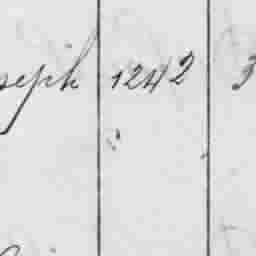 seph 1242 3